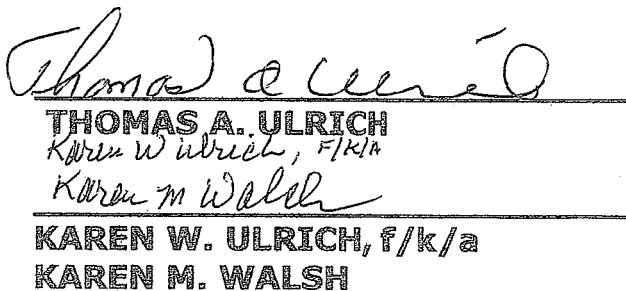 Thomas A Ulrich
THOMAS A. ULRICH
Karen W Ulrich, F/K/A
Karen M Walsh
KAREN W. ULRICH, f/k/a
KAREN M. WALSH